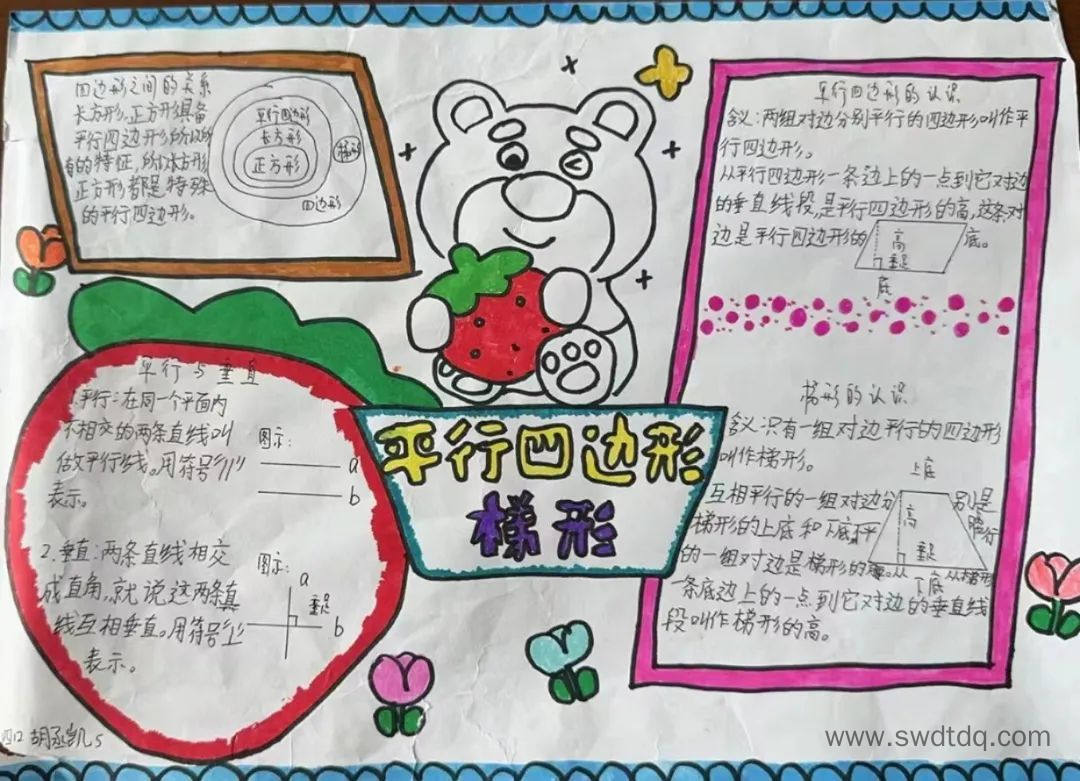 四边形之间的关系
长方形,正方形具备
平行四边形所以所
有的特征,所以长方形
正方形都是特殊
的平行四边形。
平行四边形
长方形
正方形
梯形
四边形
平行与垂直
1.平行:在同一个平面内
不相交的两条直线叫
做平行线。用符号"//"
表示。
图示:
a
b
2.垂直:两条直线相交
成直角,就说这两条直
线互相垂直。用符号"⊥"
表示。
图示:
a
垂足
b
平行四边形
梯形
平行四边形的认识
含义:两组对边分别平行的四边形叫作平
行四边形。
从平行四边形一条边上的一点到它对边
的垂直线段,是平行四边形的高,这条对
边是平行四边形的 底。
高
垂足
底
梯形的认识
含义:只有一组对边平行的四边形
叫作梯形。
上底
互相平行的一组对边分 别是
梯形的上底和下底,不 平行
的一组对边是梯形的 。从 从梯形
高
垂足
下底
一条底边上的一点到它对边的垂直线
段叫作梯形的高。
胡丞凯
www.swdtdq.com